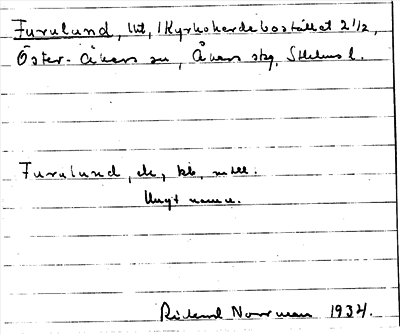 Furulund, lht, 1 Kyrkoherdebostället 2 1/2,
Öster-Åkers sn, Åkers skg, Sthlms l.
Furulund, de, kb, m.ll.
Ungt namn.
Rickard Norrman 1934.